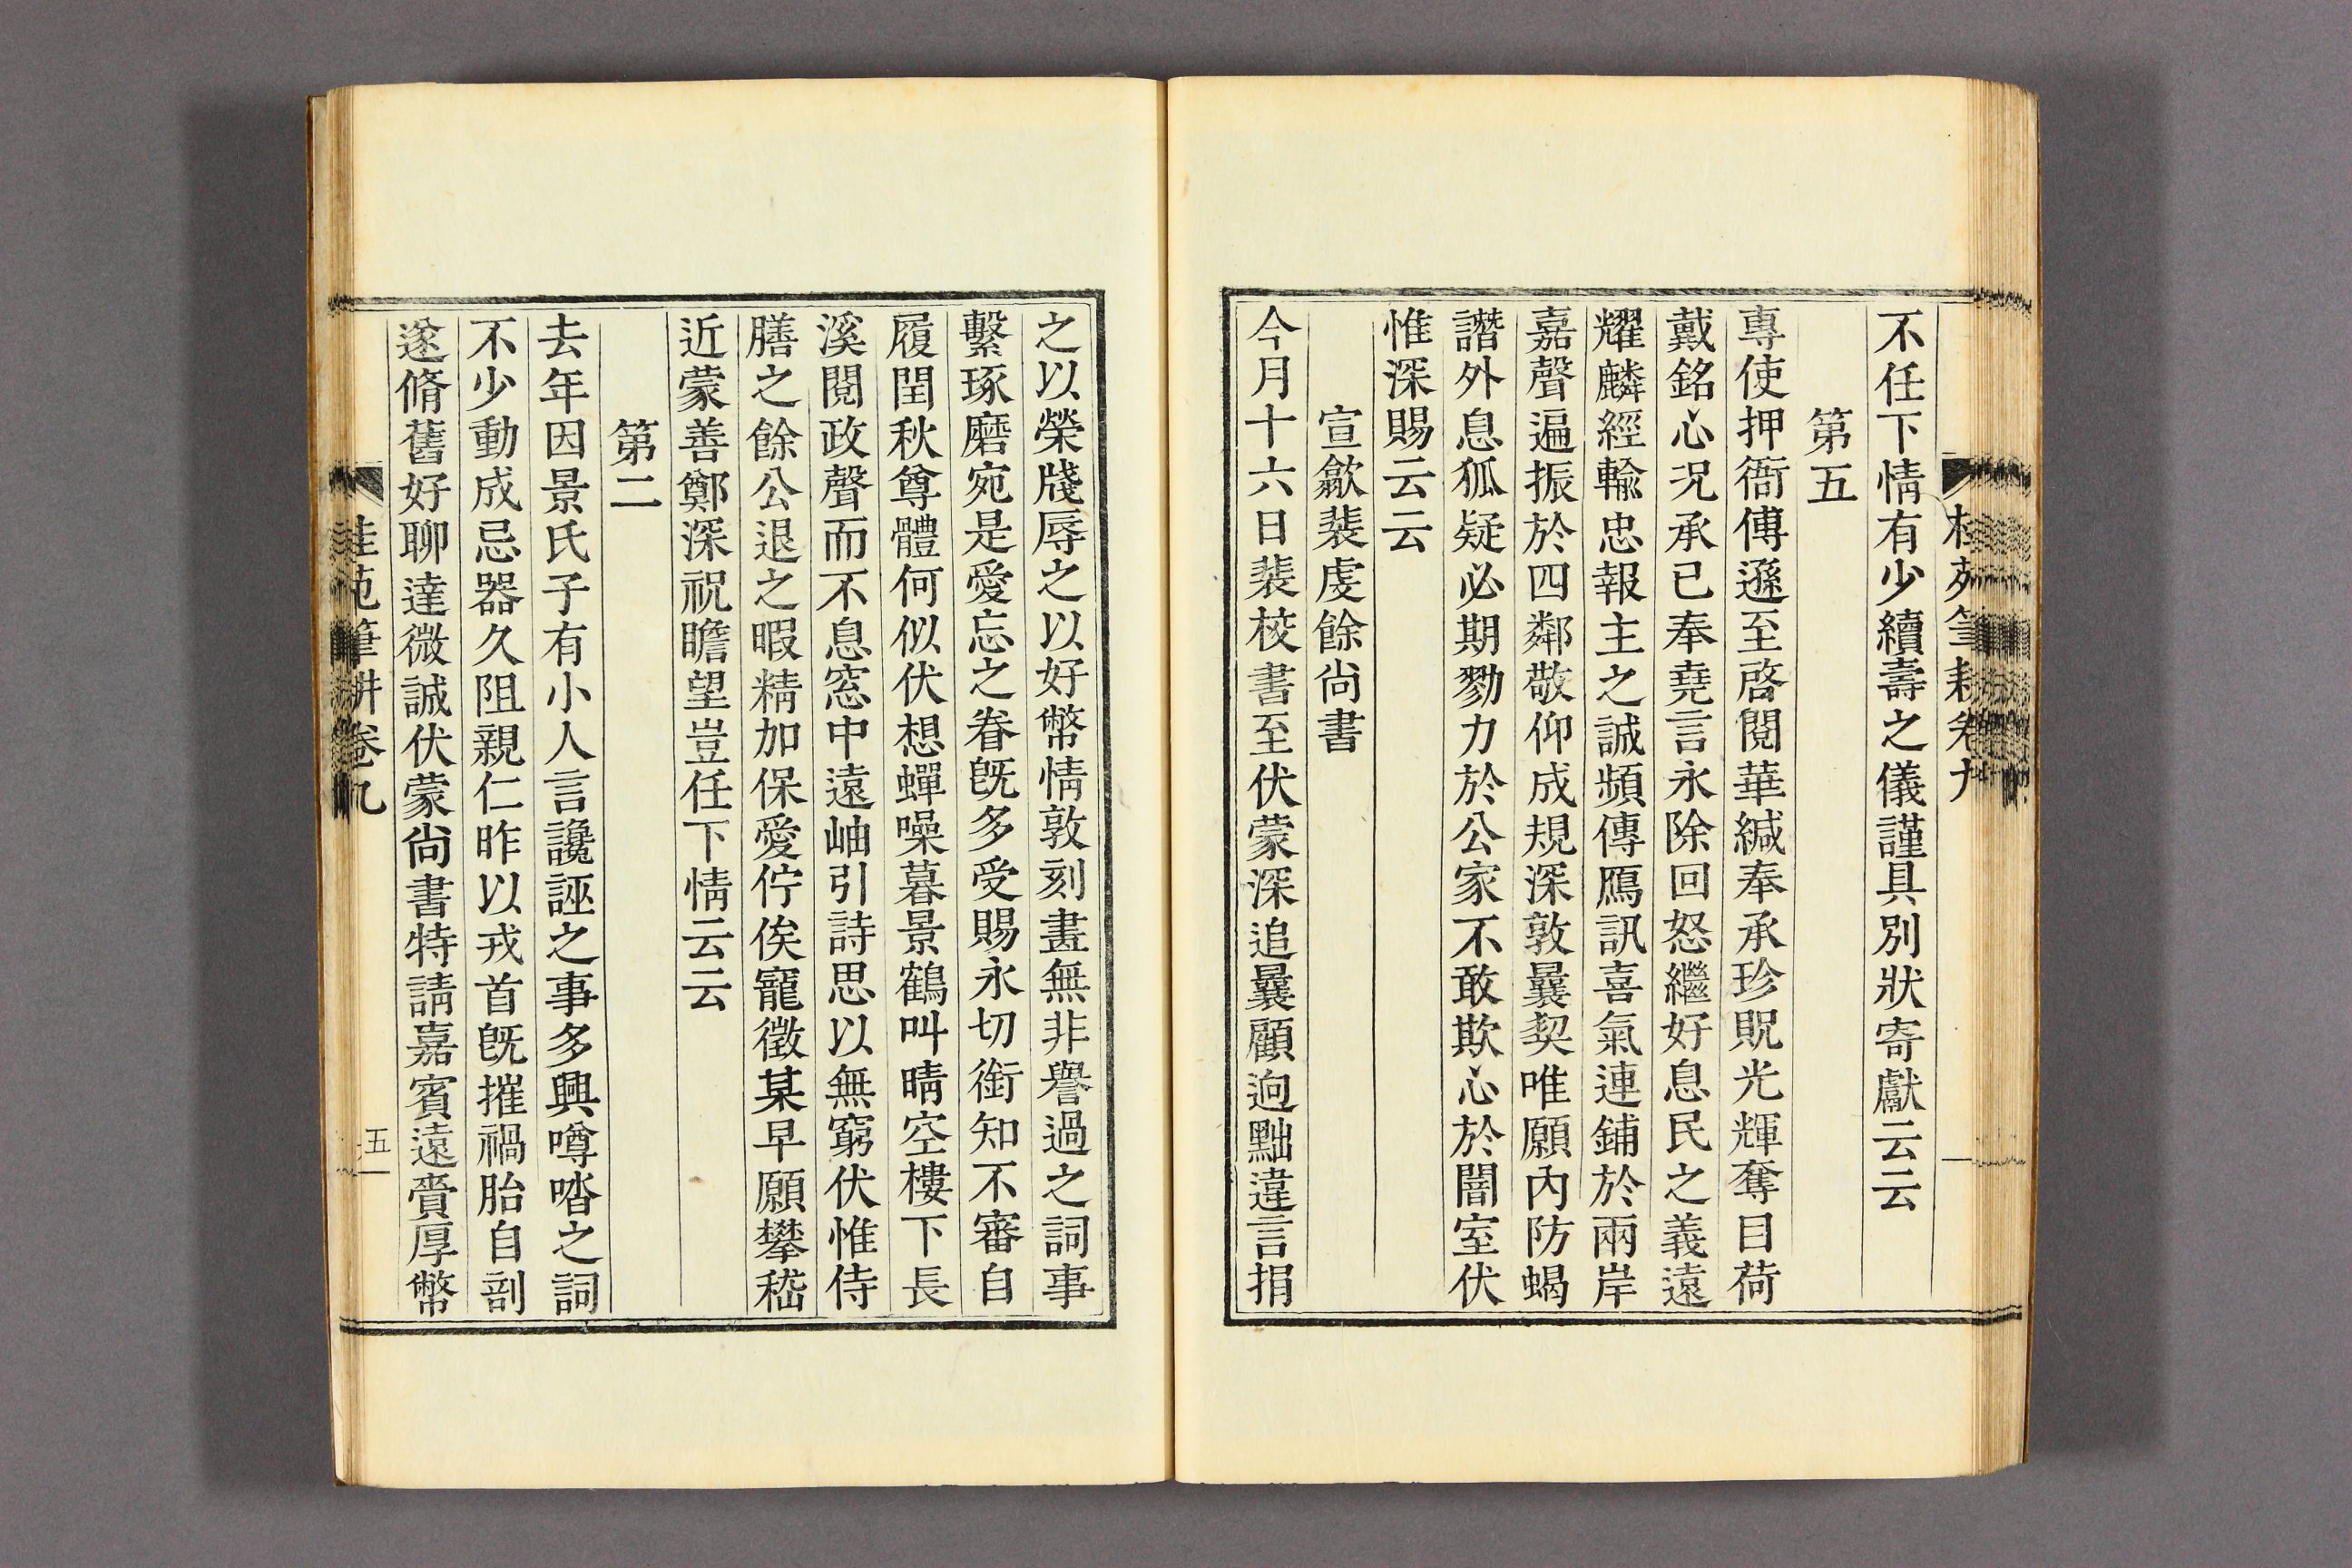 不任下情有少續壽之儀謹具別狀寄獻云云
第五
專使押衙傅遜至啓閱華緘奉承珍貺光輝奪目荷
戴銘心況承已奉堯言永除回怒繼好息民之義遠
耀麟經輸忠報主之誠頻傳鴈訊喜氣連鋪於兩岸
嘉聲遍振於四鄰敬仰成規深敦曩契唯願內防蝎
譖外息狐疑必期勠力於公家不敢欺心於闇室伏
惟深賜云云
宣歙裴虔餘尙書
今月十六日裴校書至伏蒙深追曩顧逈黜違言捐
之以榮牋辱之以好幣情敦刻畫無非譽過之詞事
繫琢磨宛是愛忘之眷旣多受賜永切銜知不審自
履閏秋尊體何似伏想蟬噪暮景鶴叫晴空樓下長
溪閱政聲而不息窓中遠岫引詩思以無窮伏惟侍
膳之餘公退之暇精加保愛佇俟寵徵某早願攀嵇
近蒙善鄭深祝瞻望豈任下情云云
第二
去年因景氏子有小人言讒誣之事多興噂喈之詞
不少動成忌器久阻親仁昨以戎首旣摧禍胎自剖
遂脩舊好聊達微誠伏蒙尙書特請嘉賓遠賫厚幣
桂苑筆耕卷九
五